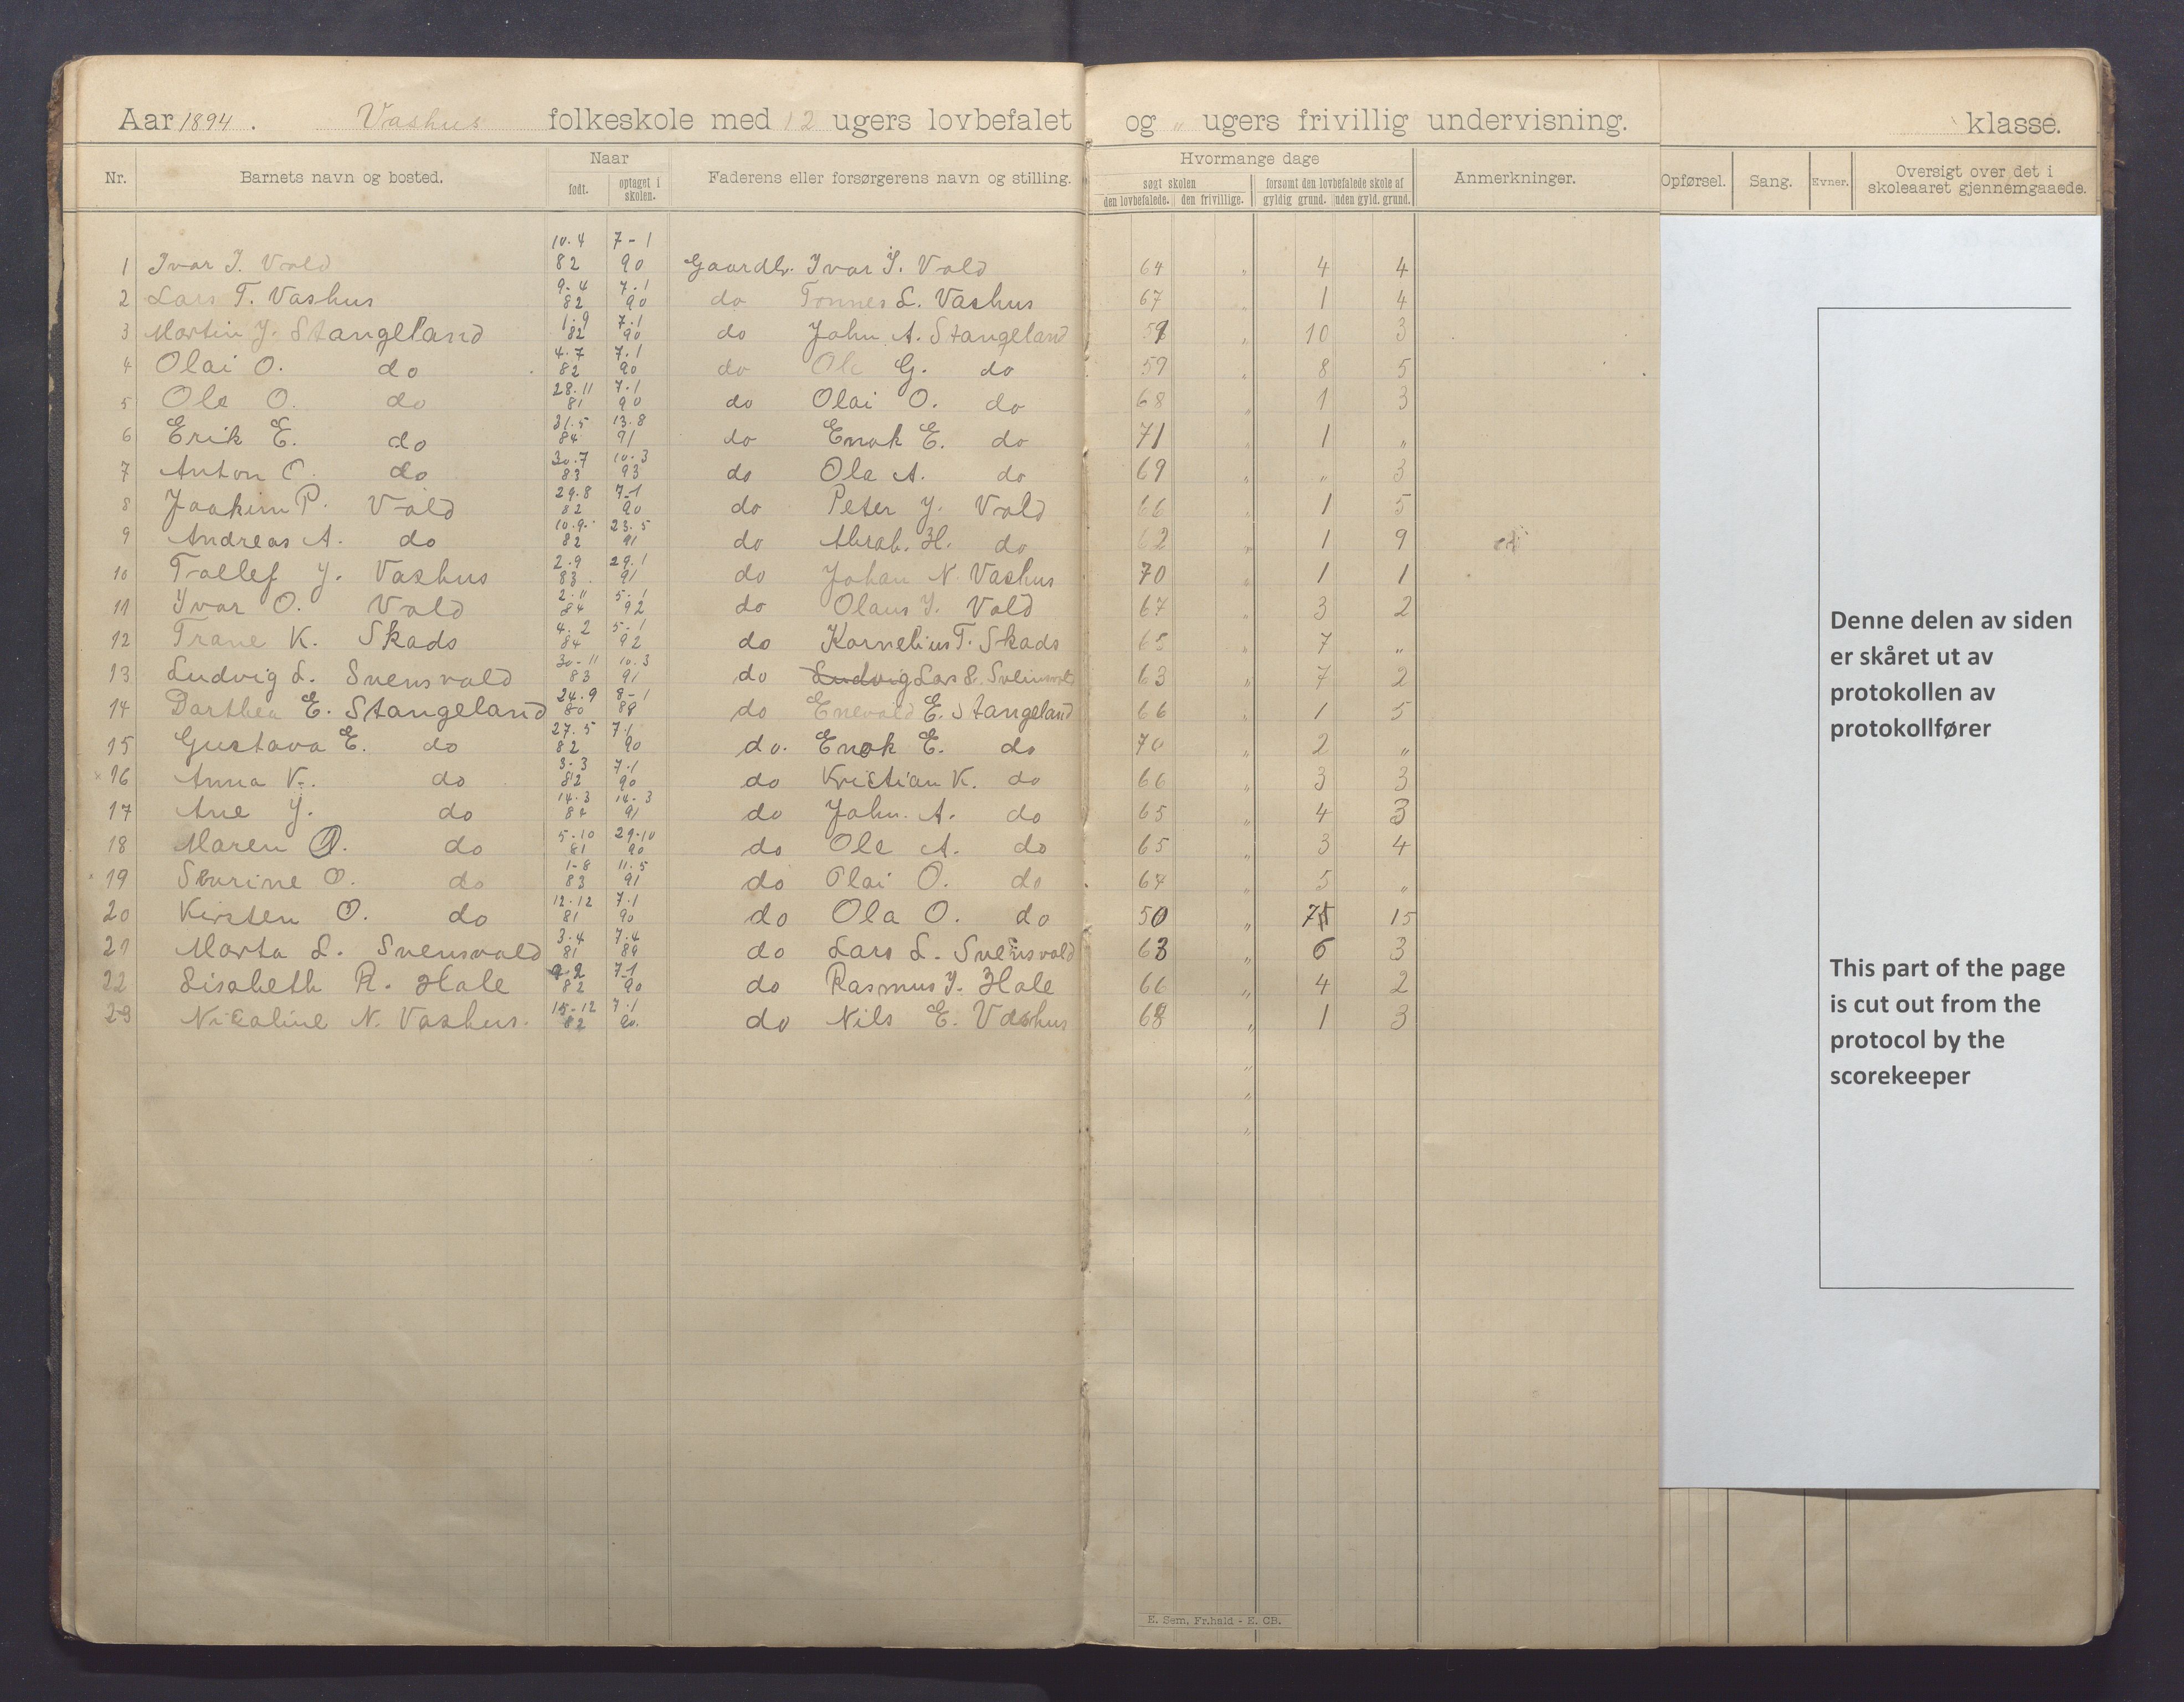 Aar 1894. Vashus folkeskole med 12 ugers lovbefalet og " ugers frivillig undervisning. klasse.
Nr. Barnets navn og bosted. Naar født. optaget i skolen. Faderens eller forsørgerens navn og stilling. Hvormange dage søgt skolen den lovbefalede. den frivillige. forsømt den lovbefalede skole af gyldig grund. uden gyld. grund. Anmerkninger. Opførsel. Sang. Evner. Oversigt over det i skoleaaret gjennemgaaede.
1 Ivar I. Vold 10.4 82 7-1 90 Gaardbr. Ivar I. Vold 64 " 4 4
2 Lars T. Vashus 9-4 82 7.1 90 do Tonnes L. Vashus 67 1 4
3 Martin J. Stangeland 1.9 82 7.1 90 do John A. Stangeland " 10 3
4 Olai O. do 4.7 82 7.1 90 do Ole G. do 59 " 8 5
5 Ole O. do 28.11 81 7.1 90 do Olai O. do 68 " 1 3
6 Erik E. do 31.5 84 13.8 91 do Enok E. do 71 " 1 "
7 Anton O. do 30.7 83 10.3 93 do Ole A. do 69 " " 3
8 Joakim P. Vold 29.8 82 7-1 90 do Peter J. Vold 66 " 1 5
9 Andreas A. do 10.9. 82 23.5 91 do Abrah. H. do 62 " 1 9
10 Tollef J. Vashus 2.9 83 29.1 91 do Johan N. Vashus 70 " 1 1
11 Ivar O. Vold 2.11 84 5-1 92 do Olaus I. Vold 67 " 3 2
12 Trane K. Skads 4.2 84 5-1 92 do Kornelius T. Skads 65 " 7 "
13 Ludvig L. Svensvold 30-11 83 10.3 91 do Ludvig Lars L. Sveinsvold 63 " 7 2
14 Dorthea E. Stangeland 24.9 80 8-1 89 do Enevald E. Stangeland 66 " 1 5
15 Gustava E. do 27.5 82 7.1 90 do. Enok E. do 70 " 2 "
16 Anna K. do 3-3 82 7.1 90 do Kristian K. do 66 " 3 3
17 Ane J. do 14.3 84 14-3 91 do John. A. do 65 " 4 3
18 Maren O. do 5-10 81 29-10 90 do Ole A. do 65 " 3 4
19 Severine O. do 1-8 83 11.5 91 do Olai O. do 67 " 5 "
20 Kirsten O. do 12.12 81 7.1 90 do Ola O. do 50 " 15
21 Marta L. Svensvold 3.4 81 7.4 89 do Lars L. Sveinsvold 63 " 6 3
22 Lisabeth R. Hole 9.2 82 7-1 90 do Rasmus J. Hole 66 " 4 2
23 Nicoline N. Vashus. 15-12 82 7.1 90. do Nils E. Vashus 68 " 1 3
"
"
"
E. Sem, Fr.hald - E. CB.
Denne delen av siden
er skåret ut av
protokollen av
protokollfører
This part of the page
is cut out from the
protocol by the
scorekeeper